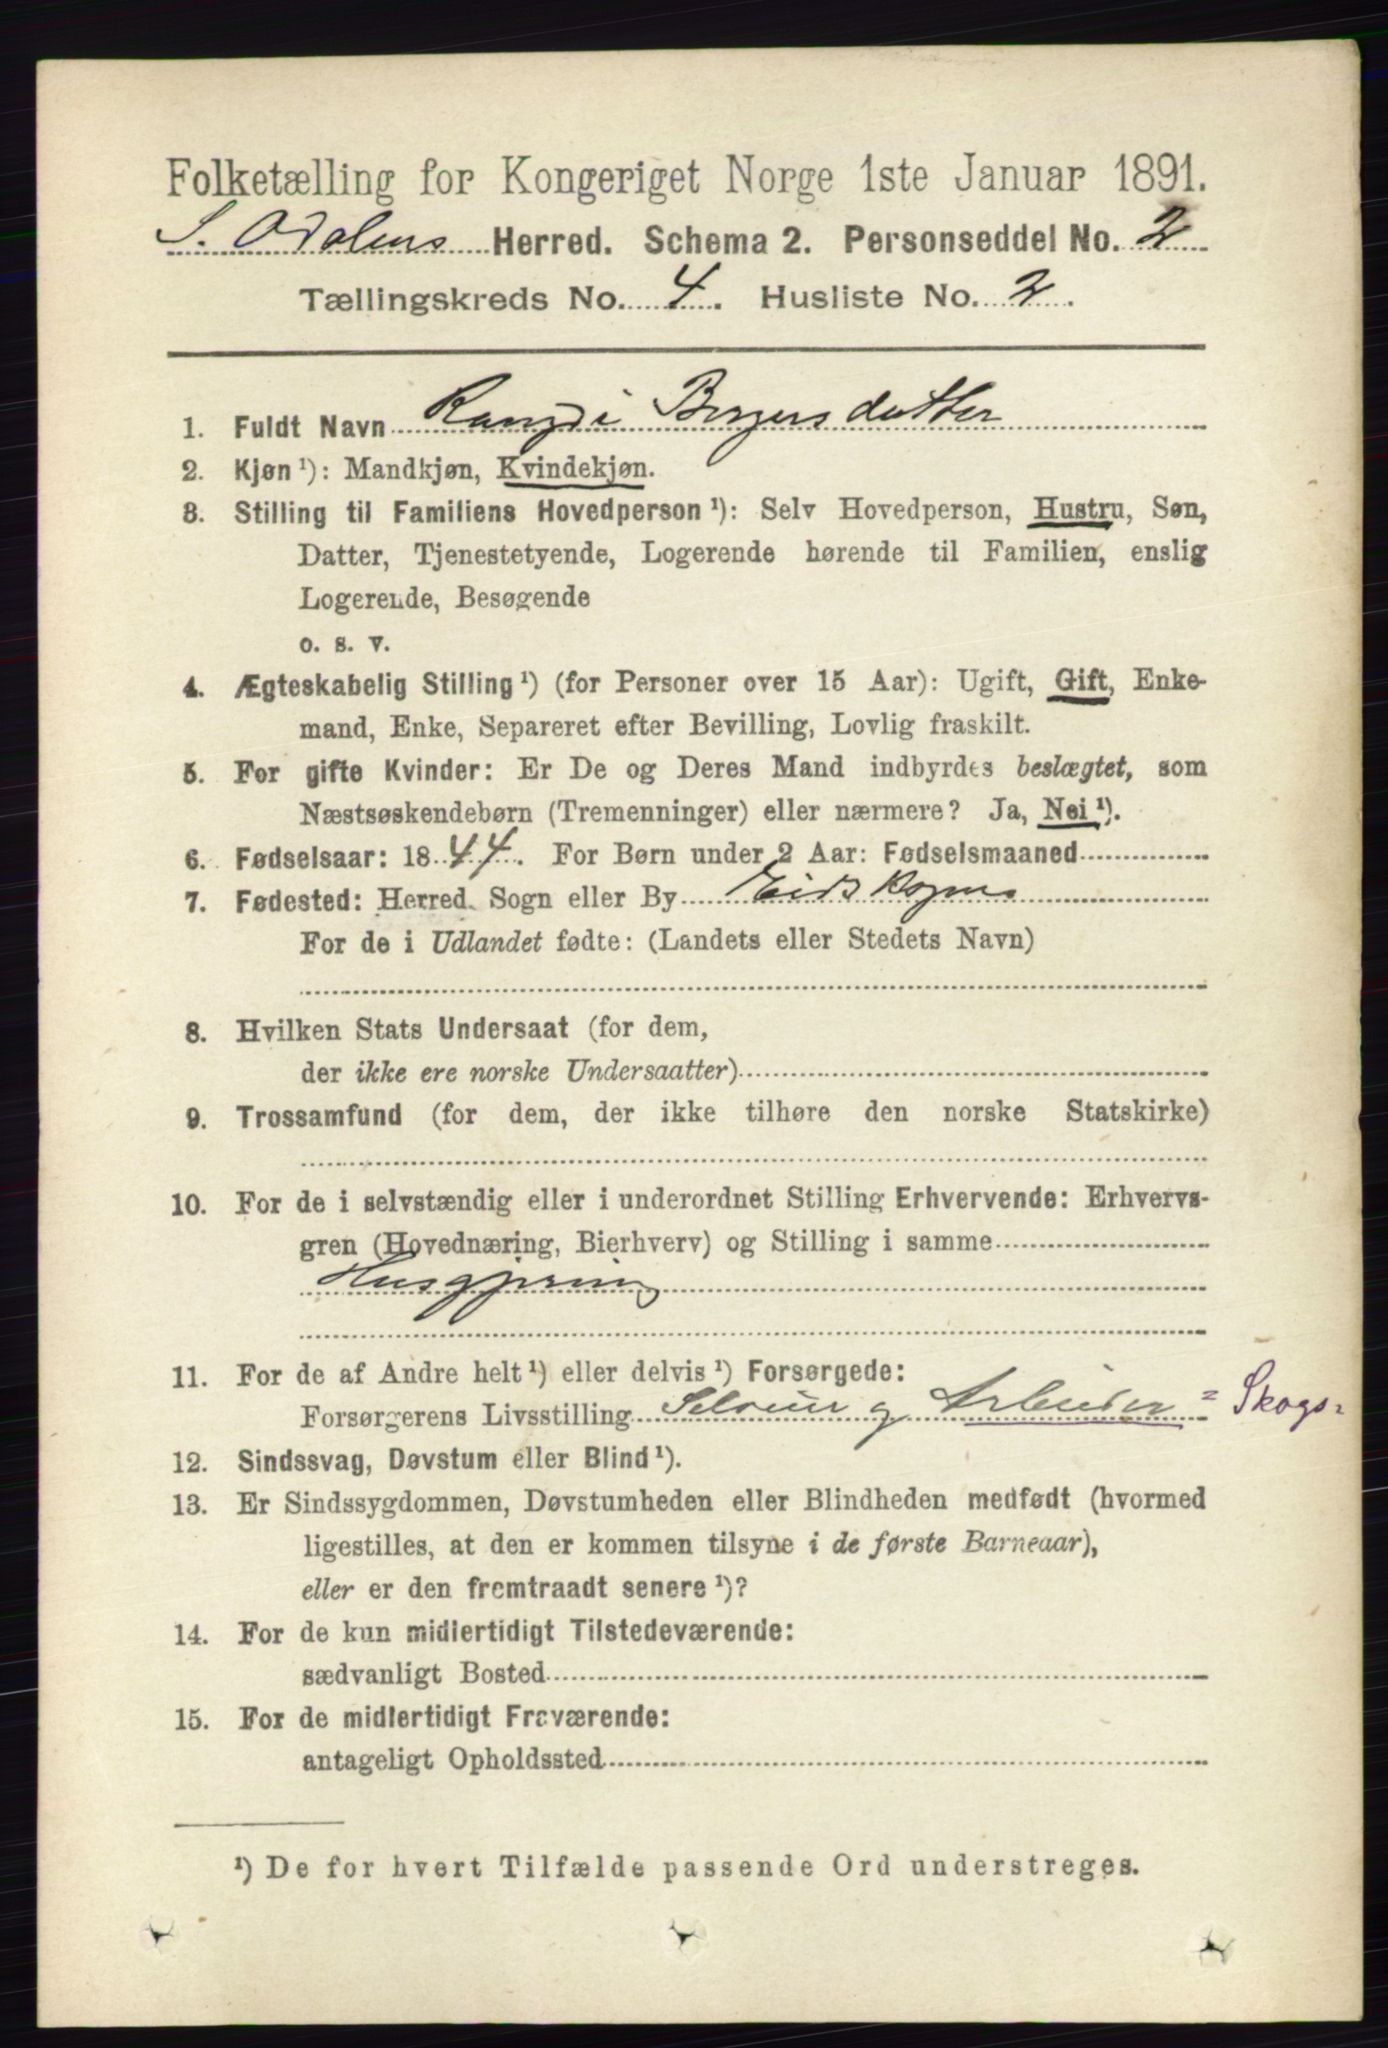 Folketælling for Kongeriget Norge 1ste Januar 1891.
S. Odalens Herred. Schema 2. Personseddel No. 2
Tællingskreds No. 4. Husliste No. 2.
1. Fuldt Navn Rangdi Bergersdatter
2. Kjøn ¹): Mandkjøn, Kvindekjøn.
3. Stilling til Familiens Hovedperson ¹): Selv Hovedperson, Hustru, Søn,
Datter, Tjenestetyende, Logerende hørende til Familien, enslig
Logerende, Besøgende
o. s. v.
4. Ægteskabelig Stilling ¹) (for Personer over 15 Aar): Ugift, Gift, Enke-
mand, Enke, Separeret efter Bevilling, Lovlig fraskilt.
5. For gifte Kvinder: Er De og Deres Mand indbyrdes beslægtet, som
Næstsøskendebørn (Tremenninger) eller nærmere? Ja, Nei ¹).
6. Fødselsaar: 1844. For Børn under 2 Aar: Fødselsmaaned
7. Fødested: Herred, Sogn eller By Eidskogens
For de i Udlandet fødte: (Landets eller Stedets Navn)
8. Hvilken Stats Undersaat (for dem,
der ikke ere norske Undersaatter)
9. Trossamfund (for dem, der ikke tilhøre den norske Statskirke)
10. For de i selvstændig eller i underordnet Stilling Erhvervende: Erhvervs-
gren (Hovednæring, Bierhverv) og Stilling i samme
Husgjerning
11. For de af Andre helt ¹) eller delvis ¹) Forsørgede:
Forsørgerens Livsstilling Selveier og Arbeider = Skogs=
12. Sindssvag, Døvstum eller Blind ¹).
13. Er Sindssygdommen, Døvstumheden eller Blindheden medfødt (hvormed
ligestilles, at den er kommen tilsyne i de første Barneaar),
eller er den fremtraadt senere ¹)?
14. For de kun midlertidigt Tilstedeværende:
sædvanligt Bosted
15. For de midlertidigt Fraværende:
antageligt Opholdssted
¹) De for hvert Tilfælde passende Ord understreges.